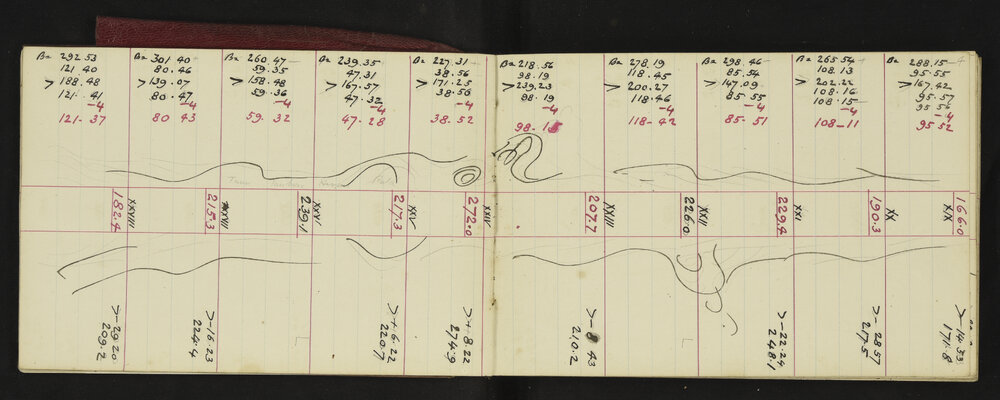 Ba 292.53
121 40
> 188.48
121. 41
-4
121. 37
Ba 301 40
80.46
> 139.07
80.47
-4
80 43
Ba 260.47
59.35
> 158.48
59.36
-4
59. 32
Ba 239.35
47.31
> 167.57
47.32
-4
47. 28
Ba 227.31
38.56
> 171.25
38.56
-4
38. 52
Ba 218.56
98.19
> 239.23
98.19
-4
98. 15
Ba 278.19
118.45
> 200.27
118.46
-4
118- 42
Ba 298.46
85.54
> 147.09
85.55
-4
85- 51
Ba 265.54
108.13
> 202.22
108.16
108.15
-4
108-11
Ba 288.15
95.55
> 167.42
95.57
95 56
-4
95 52
XXVIII
182.4
XXVII
215.3
XXVI
239.1
XXV
217.3
XXIV
272.0
XXIII
207.7
XXII
226.0
XXI
229.4
XX
190.3
XIX
166.0
>-29.20
209.2
>-16.23
224.4
>+6.22
220.7
>+8.22
274.9
>-8 43
210.2
>-22.24
248.1
>-28 57
217.5
>-14.33
171.8